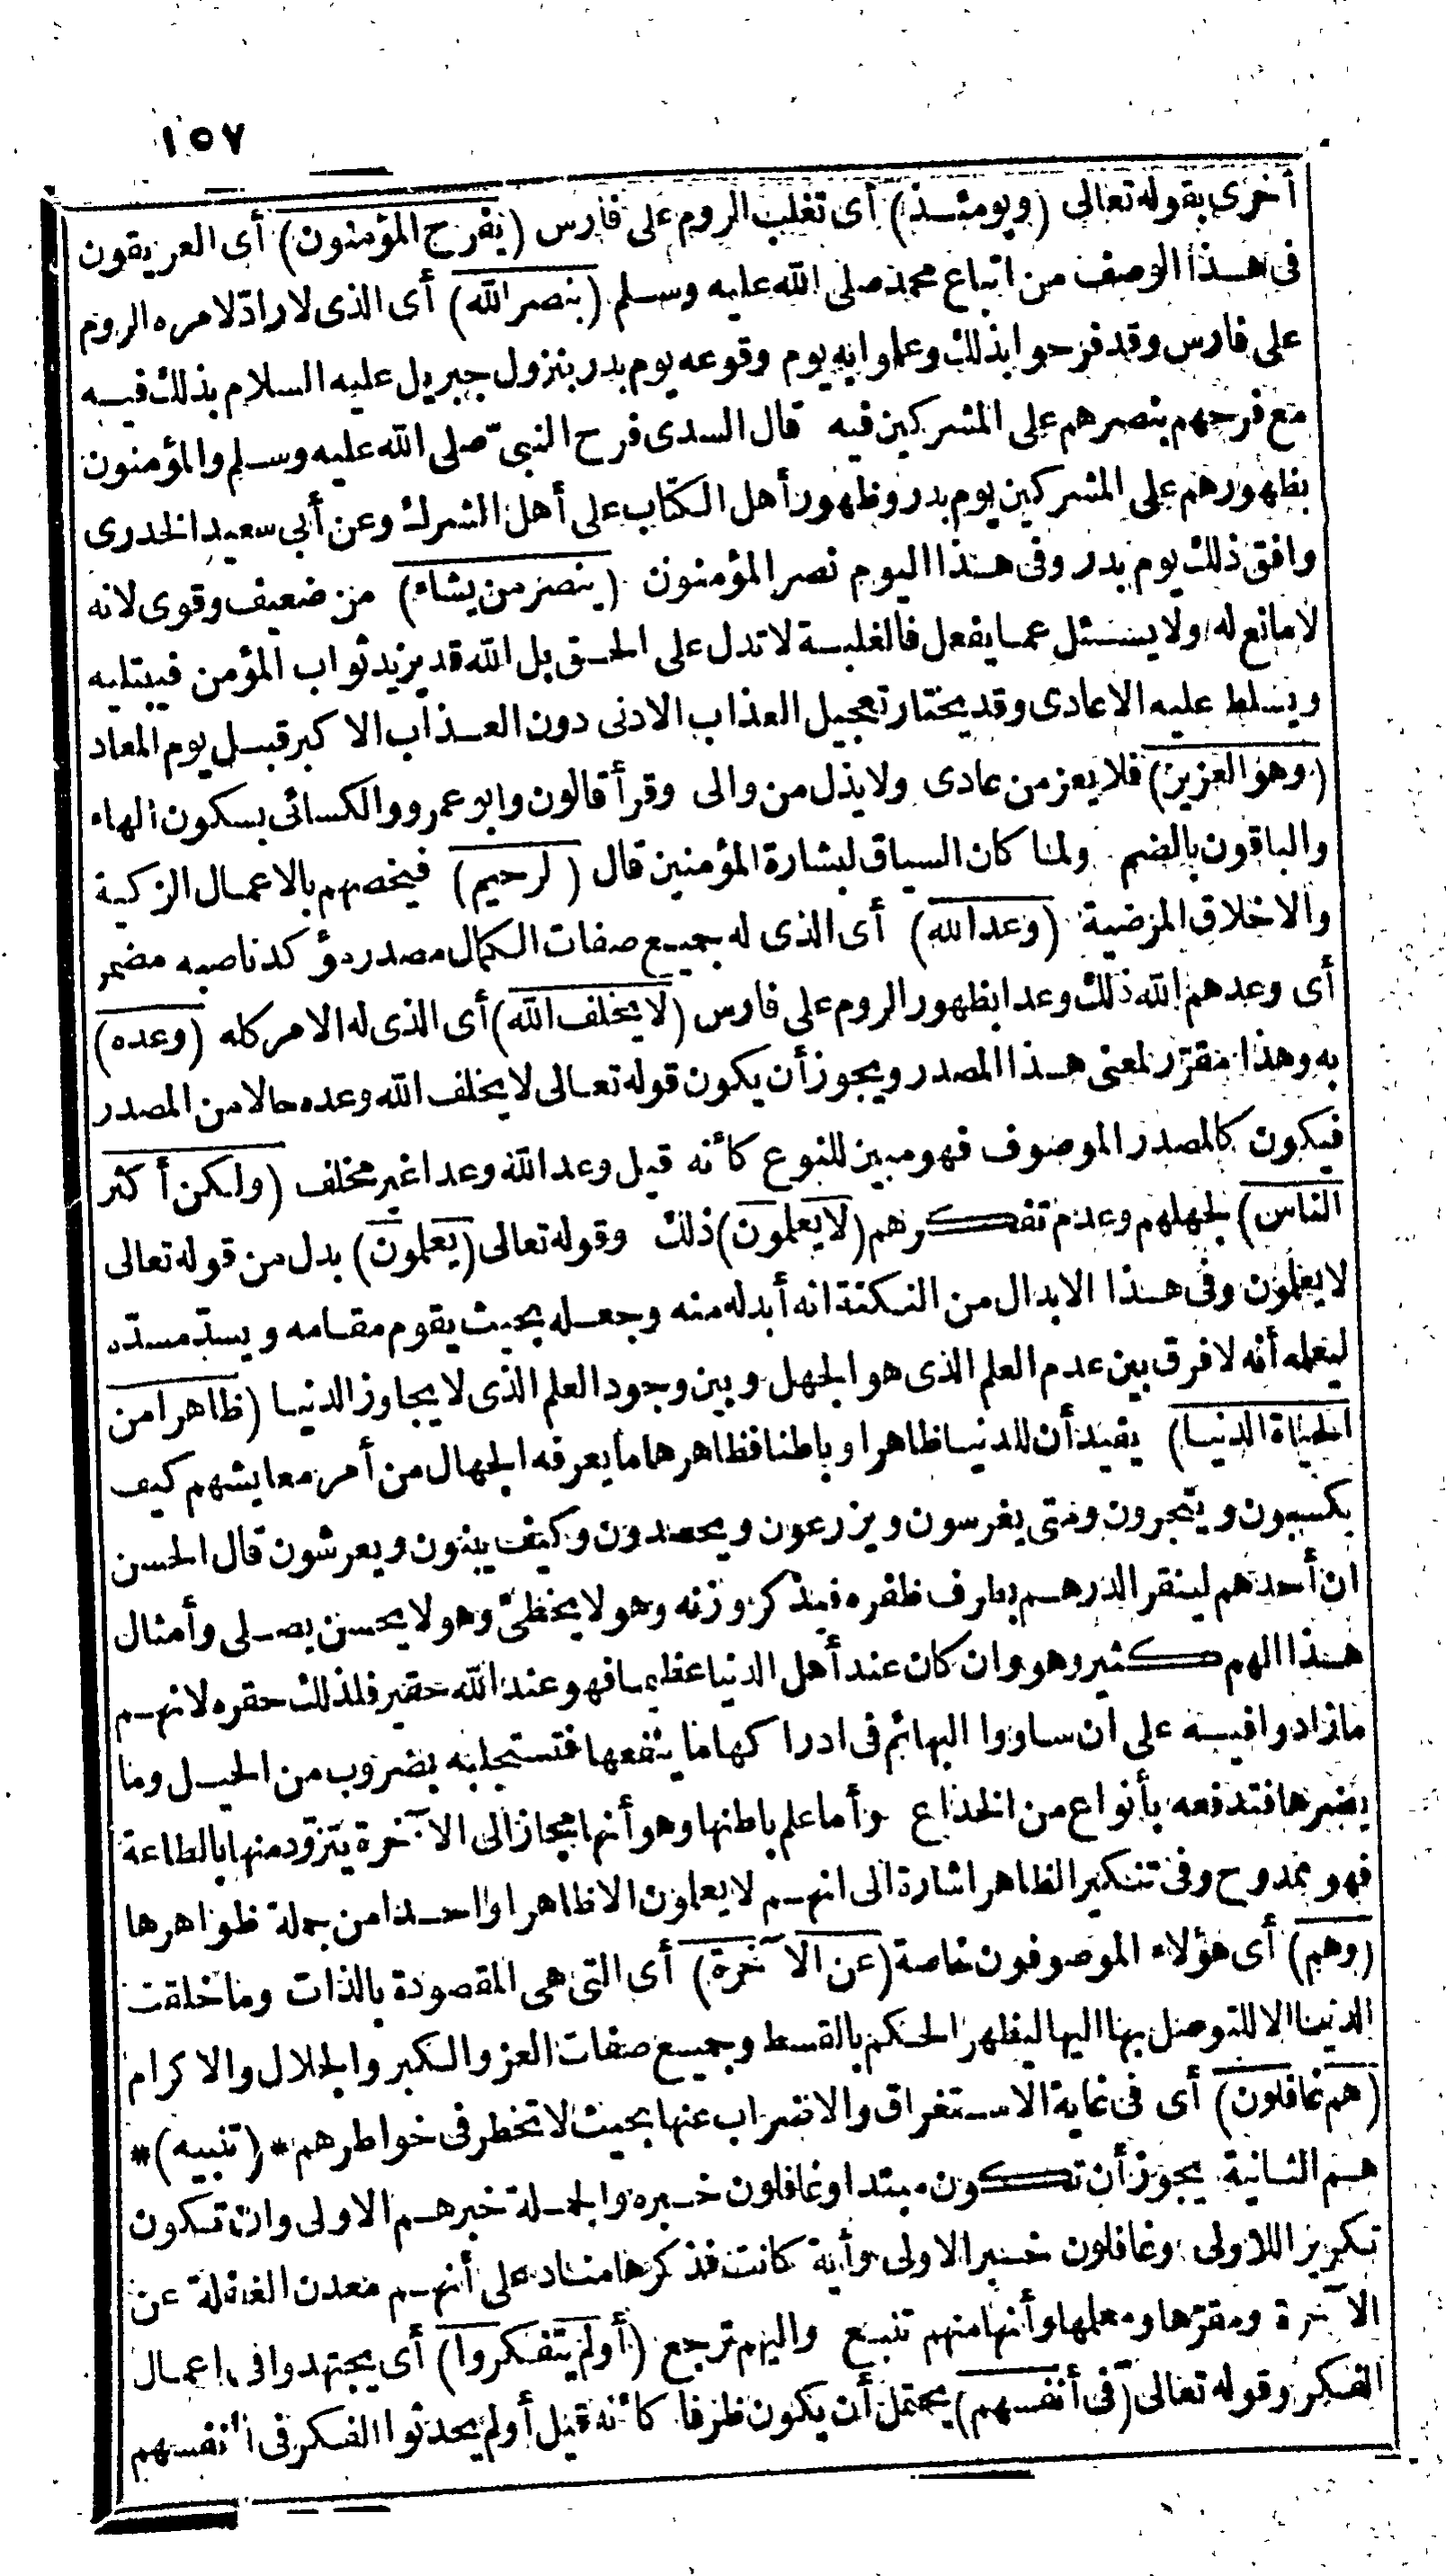 ١٥٧
أخرى بقوله تعالى (ويومئذ) أى تغلب الروم على فارس (يفرح المؤمنون) أى العريقون
فى هذا الوصف من اتباع محمد صلى الله عليه وسلم (بنصر الله) أى الذى لا رادّ لامره الروم
على فارس وقد فرحوا بذلك وعلموا به يوم وقوعه يوم بدر بنزول جبريل عليه السلام بذلك فيه
مع فرحهم بنصرهم على المشركين فيه قال السدى فرح النبىّ صلى الله عليه وسلم والمؤمنون
بظهورهم على المشركين يوم بدر وظهور أهل الكتاب على أهل الشرك وعن أبى سعيد الخدرى
وافق ذلك يوم بدر وفى هذا اليوم نصر المؤمنون (ينصر من يشاء) من ضعيف وقوى لانه
لا مانع له ولا يسئل عما يفعل فالغلبة لا تدل على الحق بل الله قد يزيد ثواب المؤمن فيبتليه
ويسلط عليه الاعادى وقد يختار تعجيل العذاب الادنى دون العذاب الاكبر قبل يوم المعاد
(وهو العزيز) فلا يعز من عادى ولا يذل من والى وقرأ قالون وابو عمرو والكسائى بسكون الهاء
والباقون بالضم ولما كان السياق لبشارة المؤمنين قال (لرحيم) فيخصهم بالاعمال الزكية
والاخلاق المرضية (وعد الله) أى الذى له جميع صفات الكمال مصدر مؤكد ناصبه مضمر
أى وعدهم الله ذلك وعدا بظهور الروم على فارس (لا يخلف الله) أى الذى له الامر كله (وعده)
به وهذا مقرّر لمعنى هذا المصدر ويجوز أن يكون قوله تعالى لا يخلف الله وعده حالا من المصدر
فيكون كالمصدر الموصوف فهو مبين للنوع كأنه قيل وعد الله وعدا غير مخلف (ولكن أكثر
الناس) لجهلهم وعدم تفكرهم (لا يعلمون) ذلك وقوله تعالى (يعلمون) بدل من قوله تعالى
لا يعلمون وفى هذا الابدال من النكتة انه أبدله منه وجعله بحيث يقوم مقامه ويسدّ مسدّه
ليعلمه أنه لا فرق بين عدم العلم الذى هو الجهل وبين وجود العلم الذى لا يجاوز الدنيا (ظاهرا من
الحياة الدنيا) يفيد أن للدنيا ظاهرا وباطنا فظاهرها ما يعرفه الجهال من أمر معايشهم كيف
يكسبون ويتجرون ومتى يغرسون ويزرعون ويحصدون وكيف يبنون ويعرشون قال الحسن
ان أحدهم لينقر الدرهم بطرف ظفره فيذكر وزنه وهو لا يخطئ وهو لا يحسن يصلى وأمثال
هذا لهم كثير وهو وان كان عند أهل الدنيا عظيما فهو عند الله حقير فلذلك حقره لانهم
ما زادوا فيه على ان ساووا البهائم فى ادراكها ما ينفعها فتستجلبه بضروب من الحيل وما
يضرها فتدفعه بأنواع من الخداع وأما علم باطنها وهو أنها مجاز الى الآخرة يتزوّد منها بالطاعة
فهو ممدوح وفى تنكير الظاهر اشارة الى انهم لا يعلمون الا ظاهرا واحدا من جملة ظواهرها
(وهم) أى هؤلاء الموصوفون خاصة (عن الآخرة) أى التى هى المقصودة بالذات وما خلقت
الدنيا الا للتوصل بها اليها ليظهر الحكم بالقسط وجميع صفات العز والكبر والجلال والاكرام
(هم غافلون) أى فى غاية الاستغراق والاضراب عنها بحيث لا تخطر فى خواطرهم * (تنبيه) *
هم الثانية يجوز أن تكون مبتدا وغافلون خبره والجملة خبر هم الاولى وان تكون
تكريرا للاولى وغافلون خبر الاولى وأية كانت فذكرها مناد على أنهم معدن الغفلة عن
الآخرة ومقرّها ومعلمها وأنها منهم تنبع واليهم ترجع (أولم يتفكروا) أى يجتهدوا فى اعمال
الفكر وقوله تعالى (فى أنفسهم) يحتمل أن يكون ظرفا كأنه قيل أولم يحدثوا الفكر فى أنفسهم